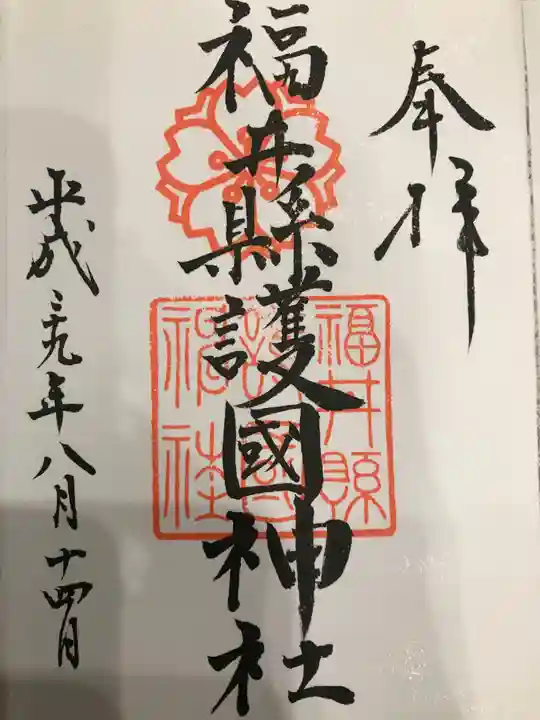 奉拝
福井縣護國神社
福井縣
護國
神社
平成二十九年八月十四日